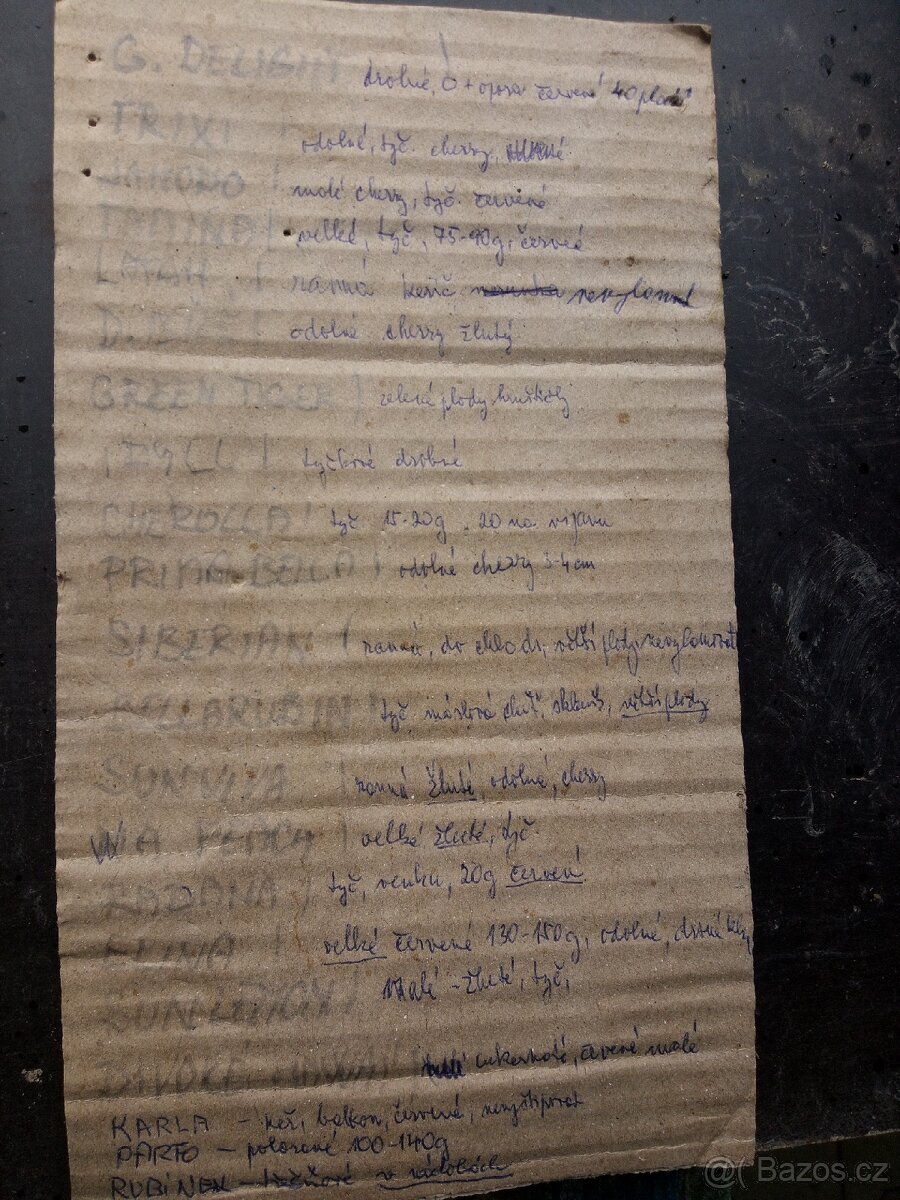 G. DELIGHT drobné, + opora červené 40 plodů
TRIXI ! odolné, tyč. cherry,
! malé cherry, tyč. červené
! velké, tyč, 75-90g, červené
! ranná keříč nevylamovat
D. ! odolné cherry žlutý
GREEN TIGER ! zelené plody hruštičky
IDYLL ! tyčkové drobné
CHEROLLA ! tyč 15-20g . 20 na vijanu
PRIMABELLA ! odolné cherry 3-4cm
SIBERIAN ! ranná, do chladu, větší plody, nevylamovat
BELLARUBIN ! tyč, máslová chuť, skleník, větší plody
SUNVIVA ! ranná žluté, odolné, cherry
velké žluté, tyč.
ZADANA ! tyč, venku, 20g červená
ELINA ! velké červené 130-150g, odolné,
! malé - žluté, tyč,
DIVOKÁ cukernaté, červené malé
KARLA - keř, balkon, červené, nevyštipovat
PARTO - polorané 100-140g
RUBÍNEK - v nádobách
@( Bazos.cz